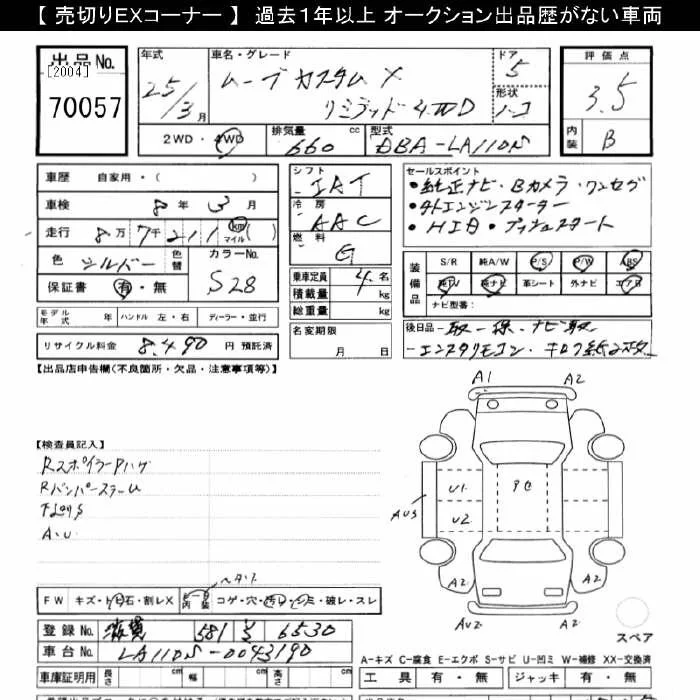 【 売切りEXコーナー 】 過去1年以上 オークション出品歴がない車両
出品No.
[2004]
70057
年式
25/3月
車名・グレード
ムーブ カスタム X
リミテッド 4WD
ドア
5
形状
評価点
3.5
内装
B
2WD・4WD
排気量
660 cc
型式
DBA-LA110S
車歴 自家用・( )
車検 8年 3月
走行 8万7千211 km マイル
色 シルバー 色替
カラーNo. S28
保証書 有・無
モデル年式 ハンドル 左・右 ディーラー・並行
リサイクル料金 8,490 円 預託済
シフト
IAT
冷房
AAC
燃料
G
乗車定員 4 名
積載量 kg
総重量 kg
名変期限
月 日
セールスポイント
・純正ナビ・Bカメラ・ワンセグ
・外エンジンスターター
・HID・プッシュスタート
装備品
S/R 純A/W P/S P/W ABS
純TV 純ナビ 革シート 外ナビ エアB
ナビ型番:
後日品
【出品店申告欄(不良箇所・欠品・注意事項等)】
【検査員記入】
Rスポイラー
Rバンパー
A.U
A1
A2
U1
U2
A2
A2
AU2
A2
スペア
FW キズ・トビ石・割レX
内装
コゲ・穴・汚レ・シミ・破レ・スレ
登録No. 滋賀 581 6530
車台No. LA110S-0043190
車庫証明用 長さ cm 幅 cm 高さ cm
A-キズ C-腐食 E-エクボ S-サビ U-凹ミ W-補修 XX-交換済
工具 有・無 ジャッキ 有・無